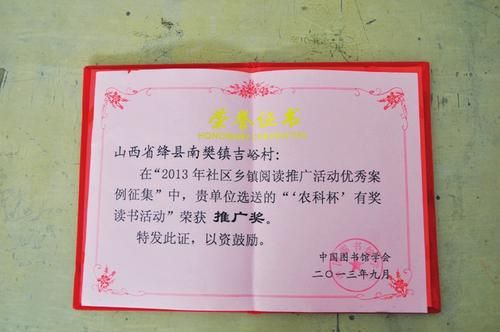 荣誉证书
山西省绛县南樊镇吉峪村:
在“2013年社区乡镇阅读推广活动优秀案
例征集”中,贵单位选送的“‘农科杯’有奖
读书活动”荣获 推广奖。
特发此证,以资鼓励。
中国图书馆学会
二〇一三年九月